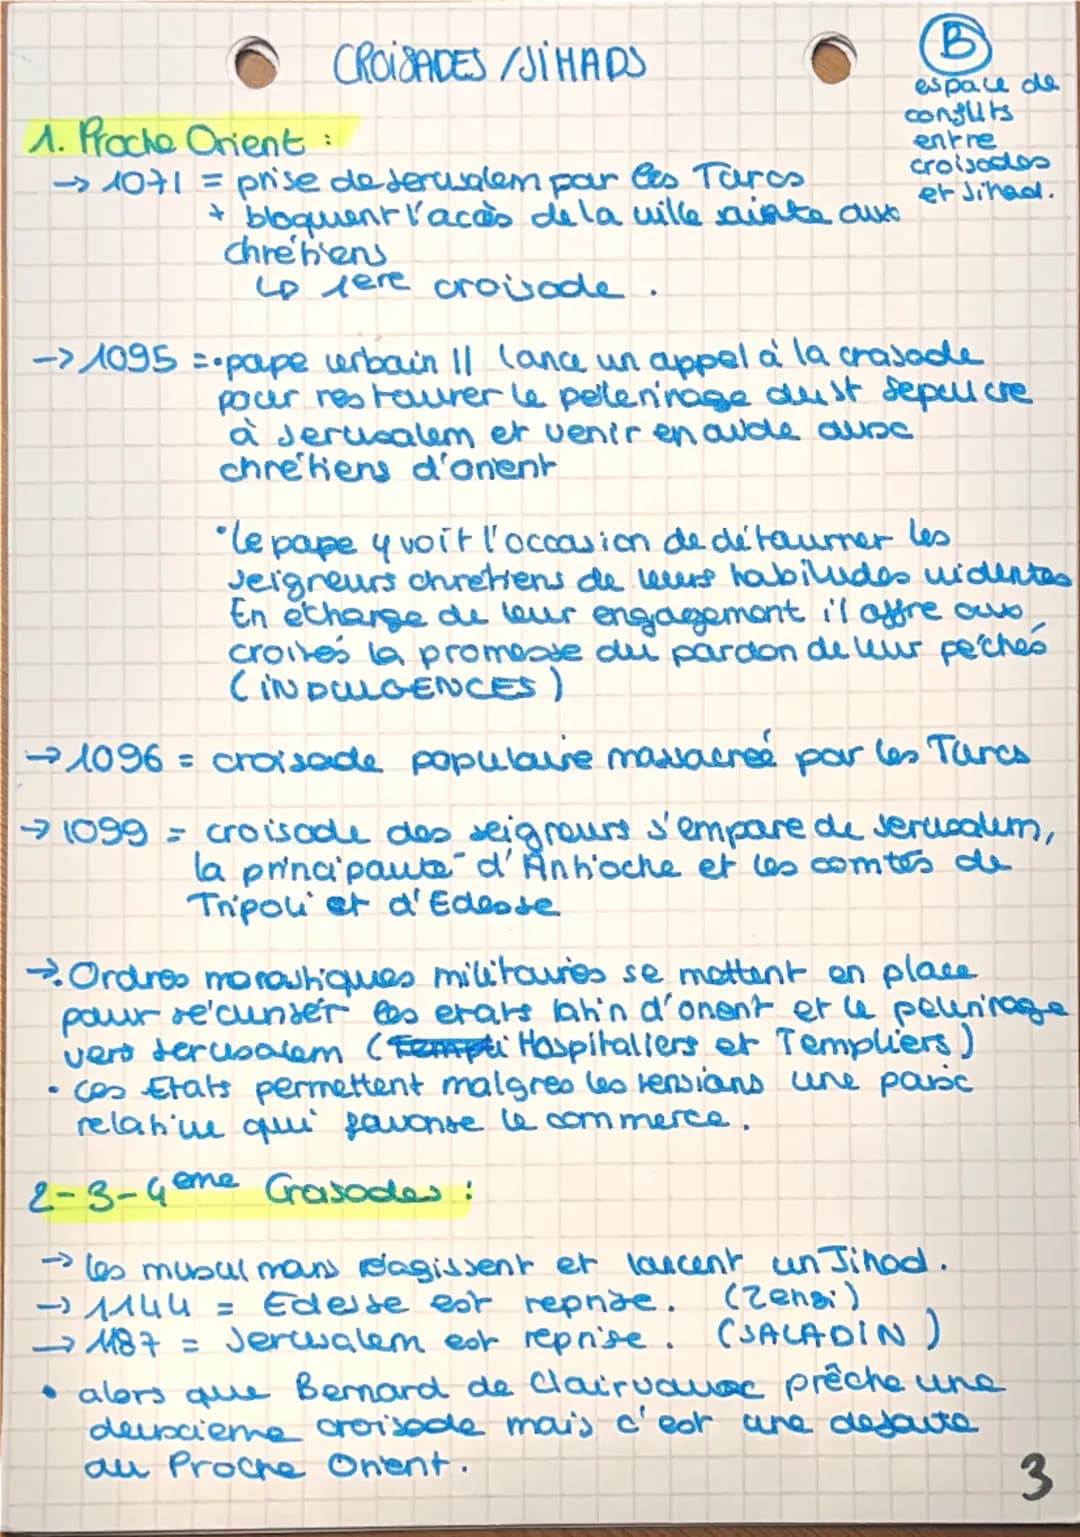 CROISADES / JIHADS
B
espace de
conflits
entre
croisades
et Jihad.
1. Proche Orient :
→ 1071 = prise de Jerusalem par les Turcs
+ bloquent l'accès de la ville sainte aux
chrétiens
↳ 1ere croisade .
→ 1095 = • pape urbain II lance un appel à la croisade
pour restaurer le pelerinage du St Sepulcre
à Jerusalem et venir en aide aux
chrétiens d'orient
• le pape y voit l'occasion de détourner les
seigneurs chretiens de leurs habitudes violentes
En échange de leur engagement il offre aux
croisés la promesse du pardon de leur péchés
(INDULGENCES)
→ 1096 = croisade populaire massacreé par les Turcs
→ 1099 = croisade des seigneurs s'empare de Jerusalem,
la principauté d'Antioche et les comtés de
Tripoli et d'Edesse
→ . Ordres monastiques militaires se mettent en place
pour sécuriser les etats latin d'orient et le pelerinage
vers Jerusalem ( Hospitaliers et Templiers)
• ces Etats permettent malgres les tensions une paix
relative qui favorise le commerce.
2-3-4eme Croisades :
→ les musulmans réagissent et lancent un Jihad.
→ 1144 = Edesse est reprise. (Zengi)
→ 1187 = Jerusalem est reprise. (SALADIN)
• alors que Bernard de Clairvaux prêche une
deuxieme croisade mais c'est une defaite
au Proche Orient.
3